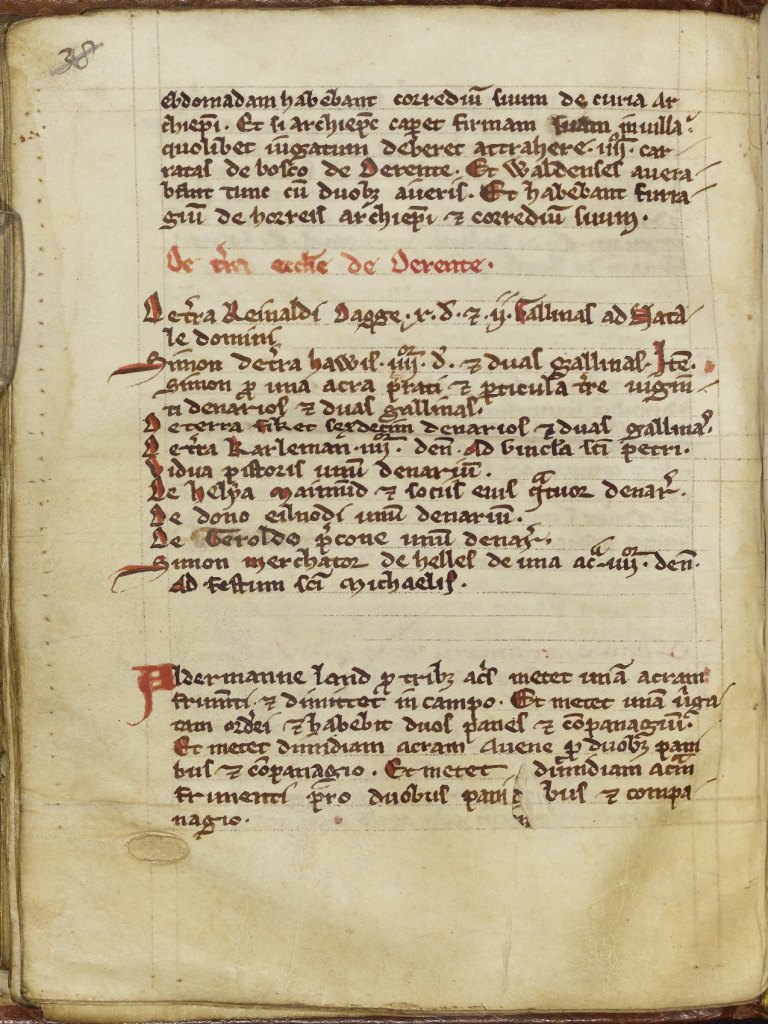 38
Ebdomadam habebant corrediū suum de curia ar
chiepī. Et si archiepc̄ caperet firmam suam in uilla
quolibet iugatum deberet attrahere .iiii. car
ratas de bosco de Derente. Et Waldenses auera
bāt tunc cū duobꝫ aueris. Et habebant furra
giū de horreis archiepī ⁊ corrediū suum.
De t̄ra eccłie de Derente.
De t̄ra Reinaldi Dagge .x. đ. ⁊ .ij. Gallinas ad Nata
le domini
Simon de t̄ra hawis .iiii. đ. ⁊ duas gallinas. Itē.
Simon ꝑ una acra prati ⁊ ꝑticula t̄re uigin
ti denarios ⁊ duas gallinas.
De terra fiket sexdecim denarios ⁊ duas gallinaſ.
De t̄ra Karleman .iiii. den̄. Ad uincła sc̄i petri.
Vidua pistoris unū denariū.
De Helya Maimūd ⁊ sociis eius qᵃtuor denar̄.
De dono eilnodi unū denariū.
De Geroldo p̄cone unū denar̄.
Simon merchator de helles de una acᵃ .iiii. den̄.
Ad festum sc̄i Michaelis.
Aldermanne lond ꝑ tribꝫ ac̄s metet unā acram
frumn̄ti ⁊ dimittet in campo. Et metet unā uirga
tam ordei ⁊ habebit duos panes ⁊ cōpanagiū.
Et metet dimidiam acram auene ꝑ duobꝫ pani
bus ⁊ cōpanagio. Et metet dimidiam acrā
frumenti pro duobus pani bus ⁊ compa
nagio.